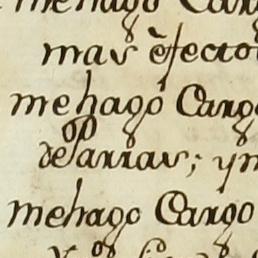 mehago Carg
mas efecto
mehago Cargo
de sarrias; y m
mehago Cargo